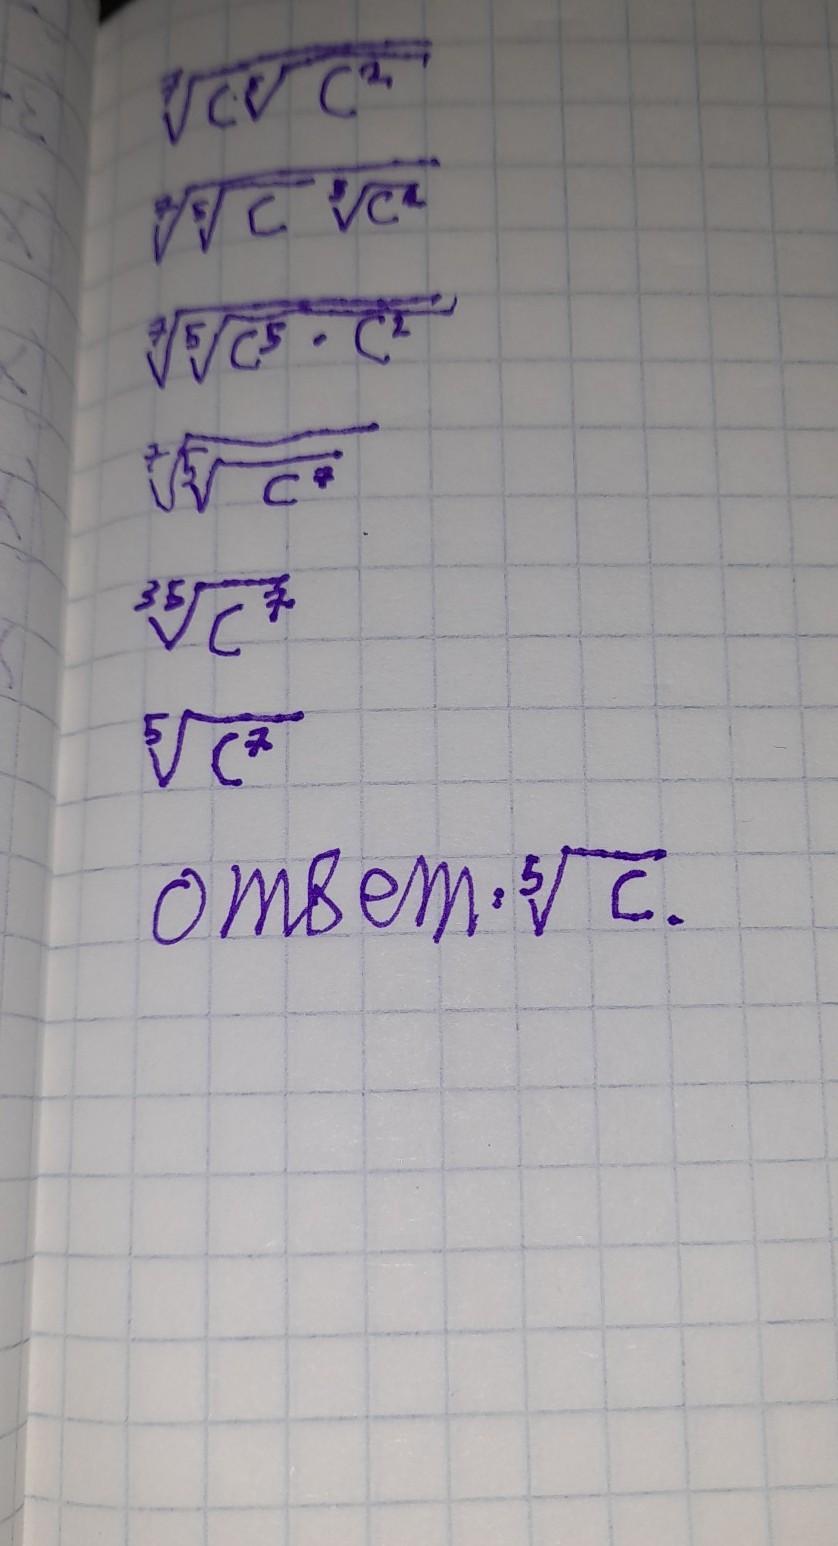 ⁷√(c ⁵√(c²))
⁷√(⁵√c ⁵√c²)
⁷√(⁵√(c⁵ · c²))
⁷√(⁵√(c⁷))
³⁵√(c⁷)
⁵√(c⁷)
ответ: ⁵√c.